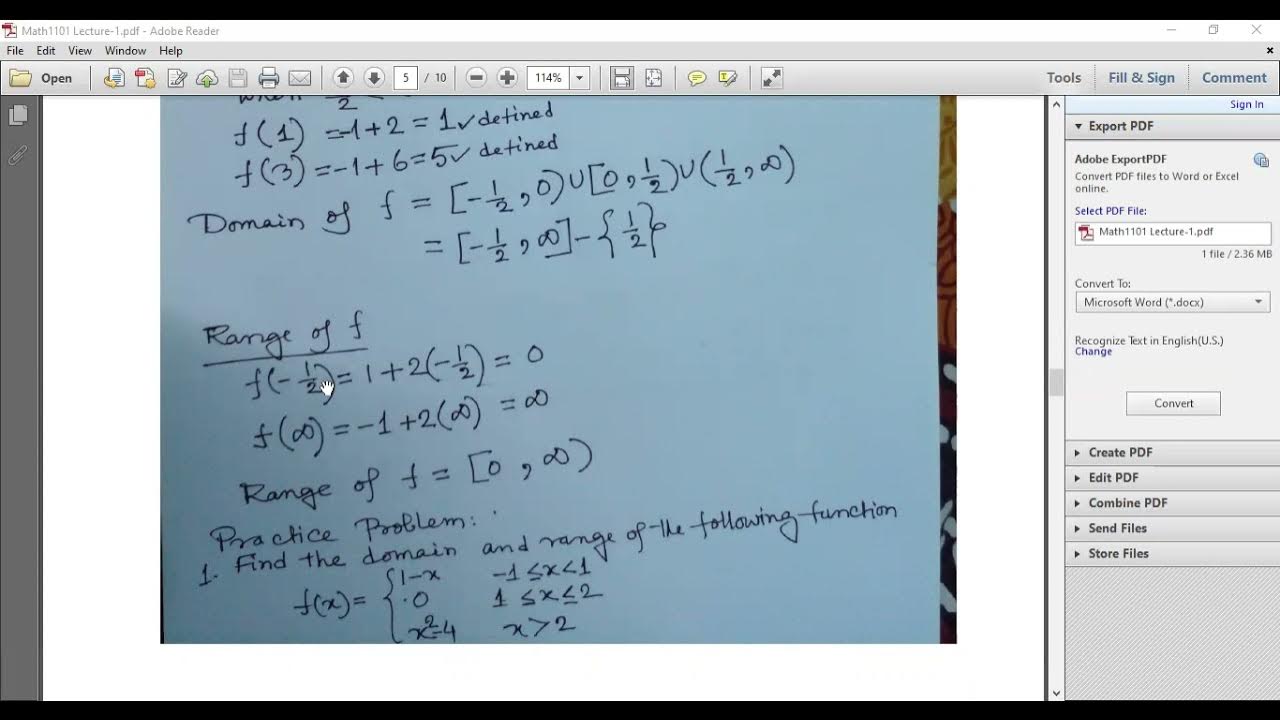 Math1101 Lecture-1.pdf - Adobe Reader
File Edit View Window Help
Open 5 / 10 114% Tools Fill & Sign Comment
2
f(1) =-1+2 = 1✓ defined
f(3) =-1+6=5✓ defined
Domain of f = [-1/2, 0) ∪ [0, 1/2) ∪ (1/2, ∞)
= [-1/2, ∞] - {1/2}
Range of f
f(-1/2) = 1+2(-1/2) = 0
f(∞) = -1+2(∞) = ∞
Range of f = [0, ∞)
Practice Problem:
1. Find the domain and range of the following function
f(x) = { 1-x -1 ≤ x < 1
0 1 ≤ x ≤ 2
x²-4 x > 2
Sign In
Export PDF
Adobe ExportPDF
Convert PDF files to Word or Excel
online.
Select PDF File:
Math1101 Lecture-1.pdf
1 file / 2.36 MB
Convert To:
Microsoft Word (*.docx)
Recognize Text in English(U.S.)
Change
Convert
Create PDF
Edit PDF
Combine PDF
Send Files
Store Files